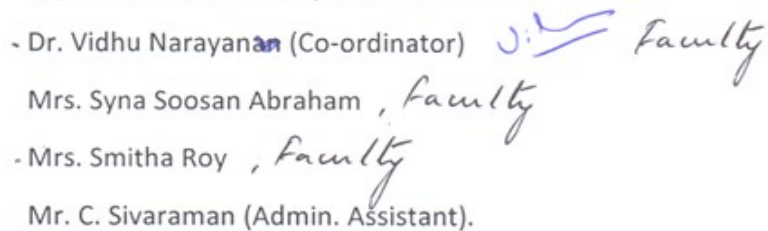 - Dr. Vidhu Narayanan (Co-ordinator) Faculty
Mrs. Syna Soosan Abraham , Faculty
- Mrs. Smitha Roy , Faculty
Mr. C. Sivaraman (Admin. Assistant).